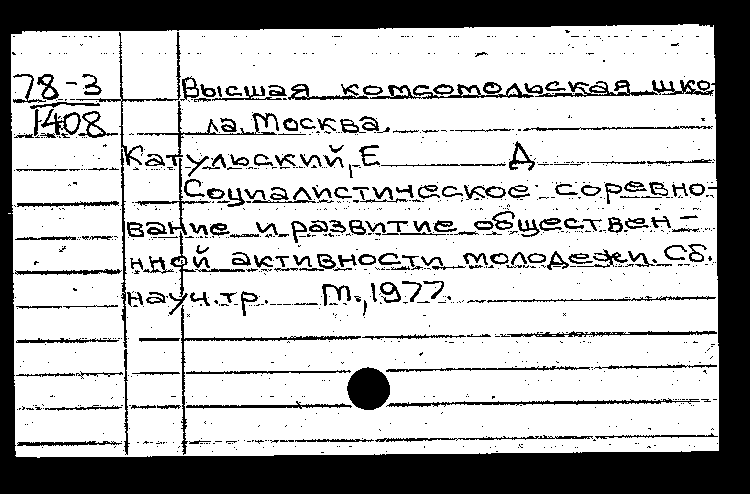 78-3 Высшая комсомольская шко-
1408 ла. Москва.
Катульский, Е Д
Социалистическое соревно-
вание и развитие обществен-
нной активности молодежи. Сб.
науч.тр. М., 1977.